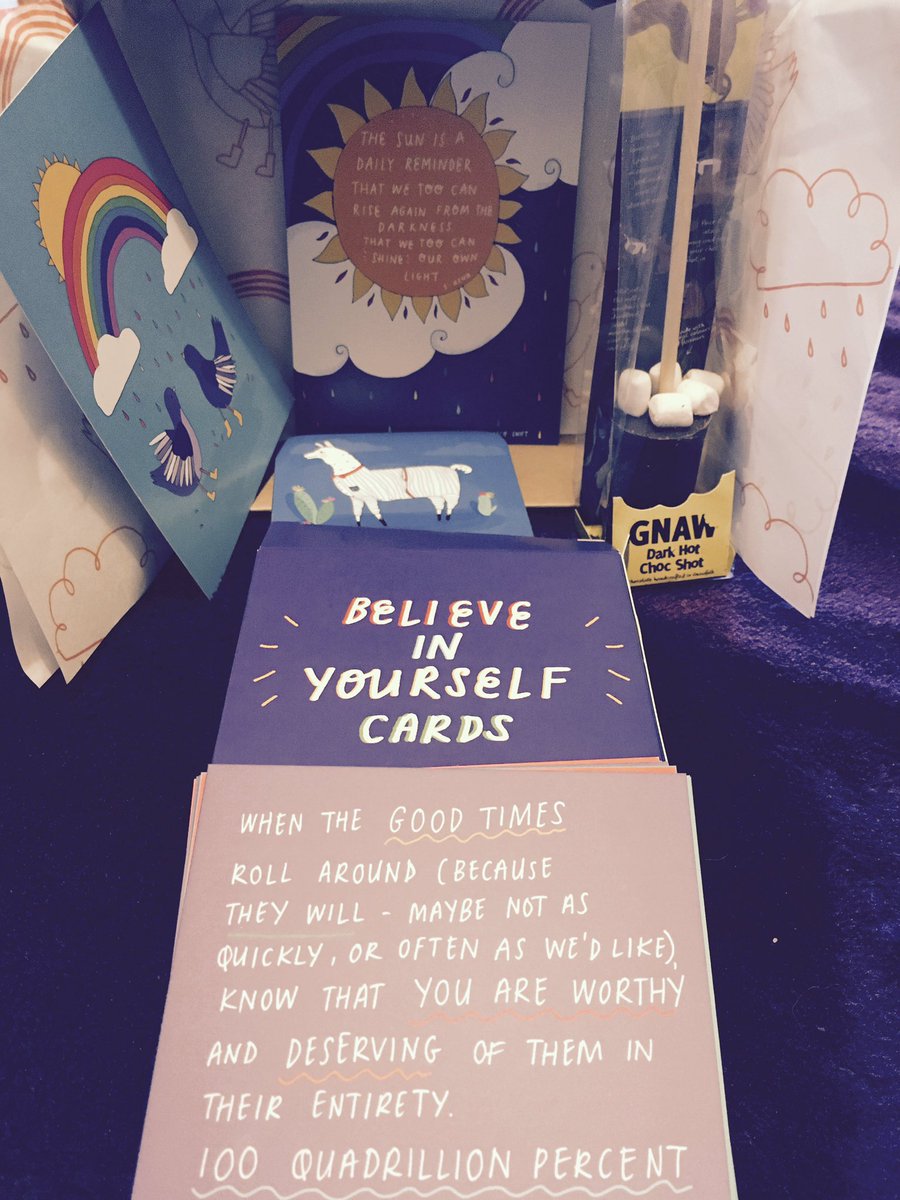 THE SUN IS A
DAILY REMINDER
THAT WE TOO CAN
RISE AGAIN FROM THE
DARKNESS
THAT WE TOO CAN
SHINE OUR OWN
LIGHT
GNAW
Dark Hot
Choc Shot
BELIEVE
IN
YOURSELF
CARDS
WHEN THE GOOD TIMES
ROLL AROUND (BECAUSE
THEY WILL - MAYBE NOT AS
QUICKLY, OR OFTEN AS WE'D LIKE),
KNOW THAT YOU ARE WORTHY
AND DESERVING OF THEM IN
THEIR ENTIRETY.
100 QUADRILLION PERCENT